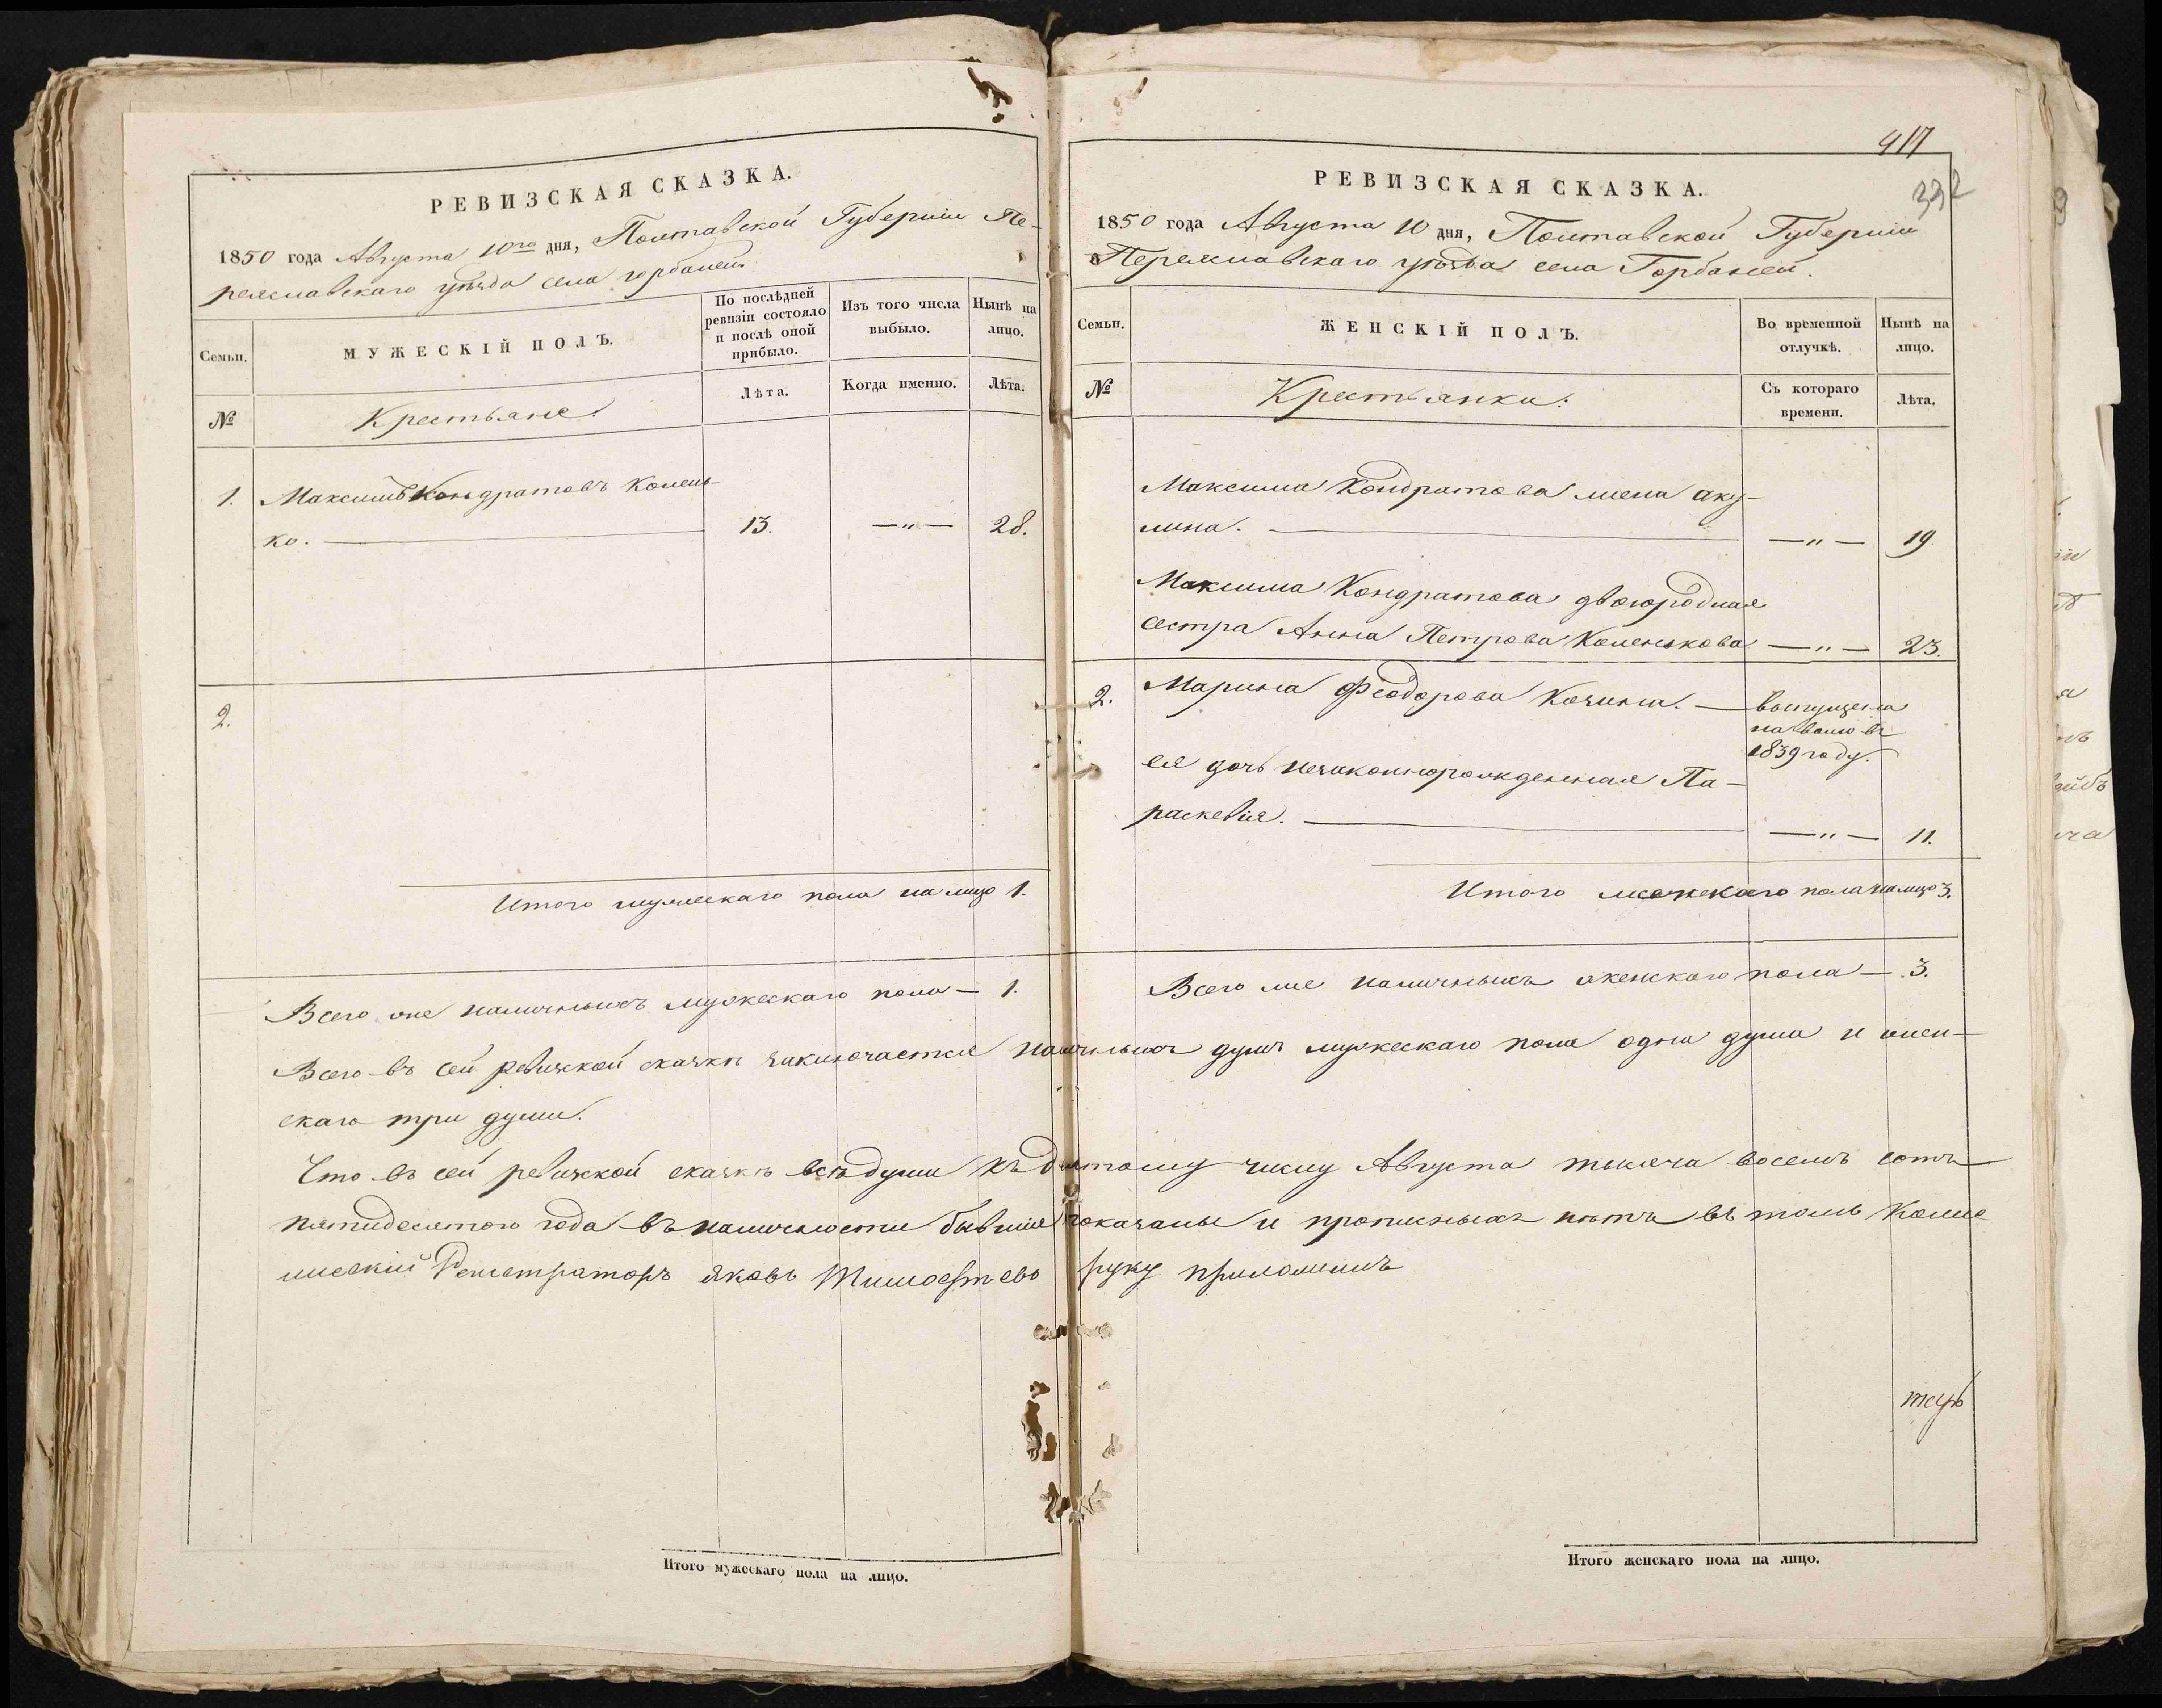 РЕВИЗСКАЯ СКАЗКА.
1850 года Августа 10го дня, Полтавской Губернии Пе-
реяславскаго уѣзда села горбаней.
Семьи.
МУЖЕСКІЙ ПОЛЪ.
По послѣдней ревизіи состояло и послѣ оной прибыло.
Изъ того числа выбыло.
Нынѣ на лицо.
№
Крестьяне:
Лѣта.
Когда именно.
Лѣта.
1. Максимъ Кондратовъ Колень-
ко. 13. —„— 28.
2.
Итого мужескаго пола на лицо 1.
Всего же наличныхъ мужескаго пола — 1.
417
332
РЕВИЗСКАЯ СКАЗКА.
1850 года Августа 10 дня, Полтавской Губернии
Переяславскаго уѣзда села Горбаней.
Семьи.
ЖЕНСКІЙ ПОЛЪ.
Во временной отлучкѣ.
Нынѣ на лицо.
№
Крестьянки:
Съ котораго времени.
Лѣта.
Максима Кондратова жена аку-
лина. —„— 19
Максима Кондратова двоюродная
сестра Анна Петрова Коленькова —„— 23.
2. Марина Феодорова Кочина. — выпущена
на волю въ
1839 году.
ея дочь незаконнорожденная Па-
раскевія. —„— 11.
Итого женскаго пола налицо 3.
Всего же наличныхъ женскаго пола — 3.
Всего въ сей ревизской сказкѣ заключается наличныхъ душъ мужескаго пола одна душа и жен-
скаго три души.
Что въ сей ревизской сказкѣ всѣ души къ десятому числу Августа тысяча восемь сотъ
пятидесятого года въ наличности бывшія показаны и прописныхъ нѣтъ въ томъ Колле
жскій Регистраторъ Яковъ руку приложилъ
Итого мужескаго пола на лицо.
Итого женскаго пола на лицо.